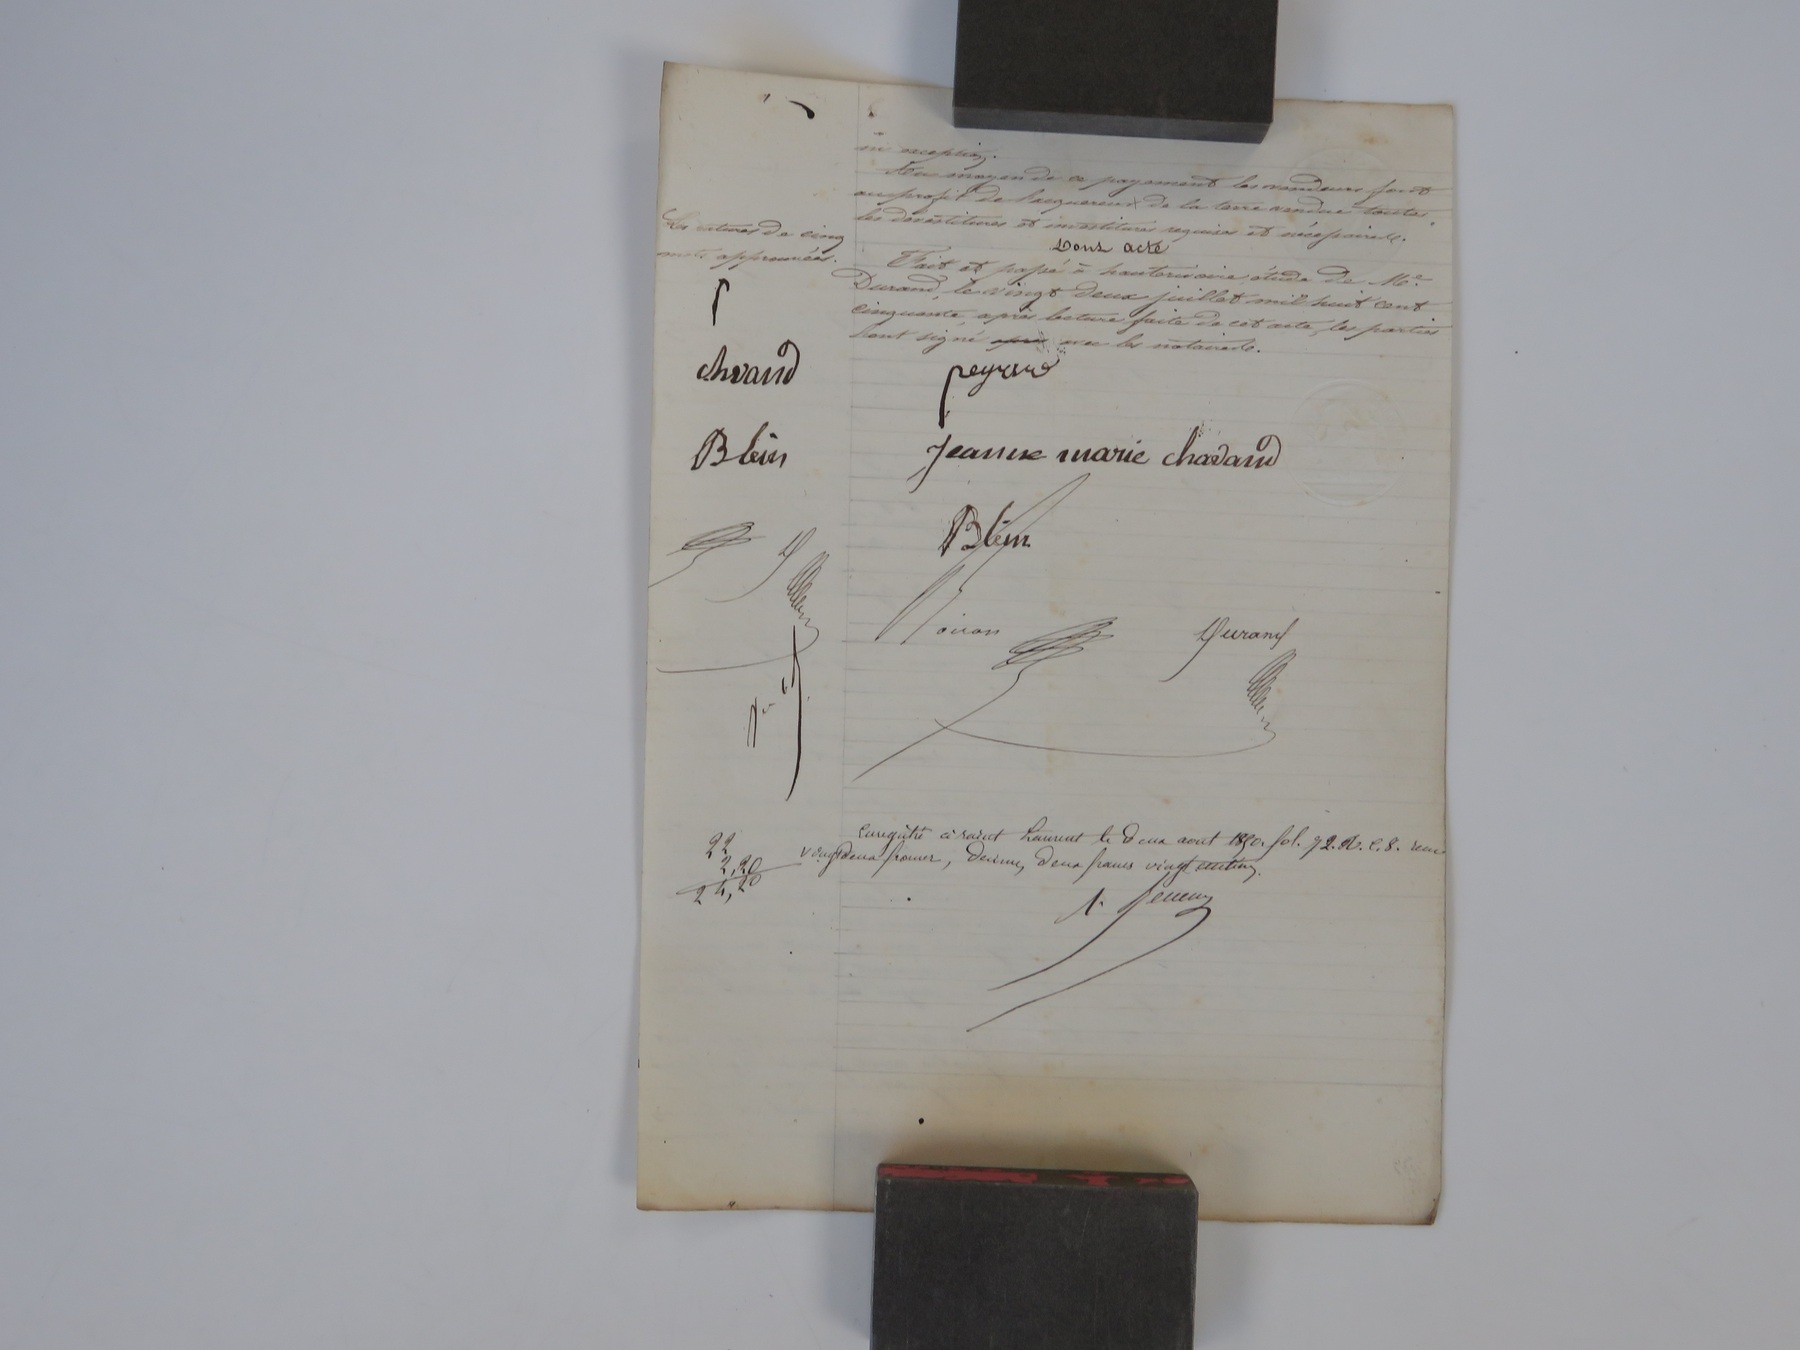 ni exception.
Au moyen de ce payement les vendeurs font
au profit de l'acquereur de la terre vendue toutes
les dévestitures et investitures requises et nécessaires.
Dont acte
Fait et passé à hauterivoire, étude de Me
Durand, le vingt deux juillet mil huit cent
cinquante, après lecture faite de cet acte, les parties
ont signé avec les notaires.
Les ratures de cinq
mots approuvées.
chvand
Blein
peyrard
Jeanne marie chavand
Blein
Durand
22
2,20
24,20
Enregistré à saint Laurent le deux aout 1850. fol. 72. R. C. 8. recu
vingt deux francs, decime, deux francs vingt centimes.